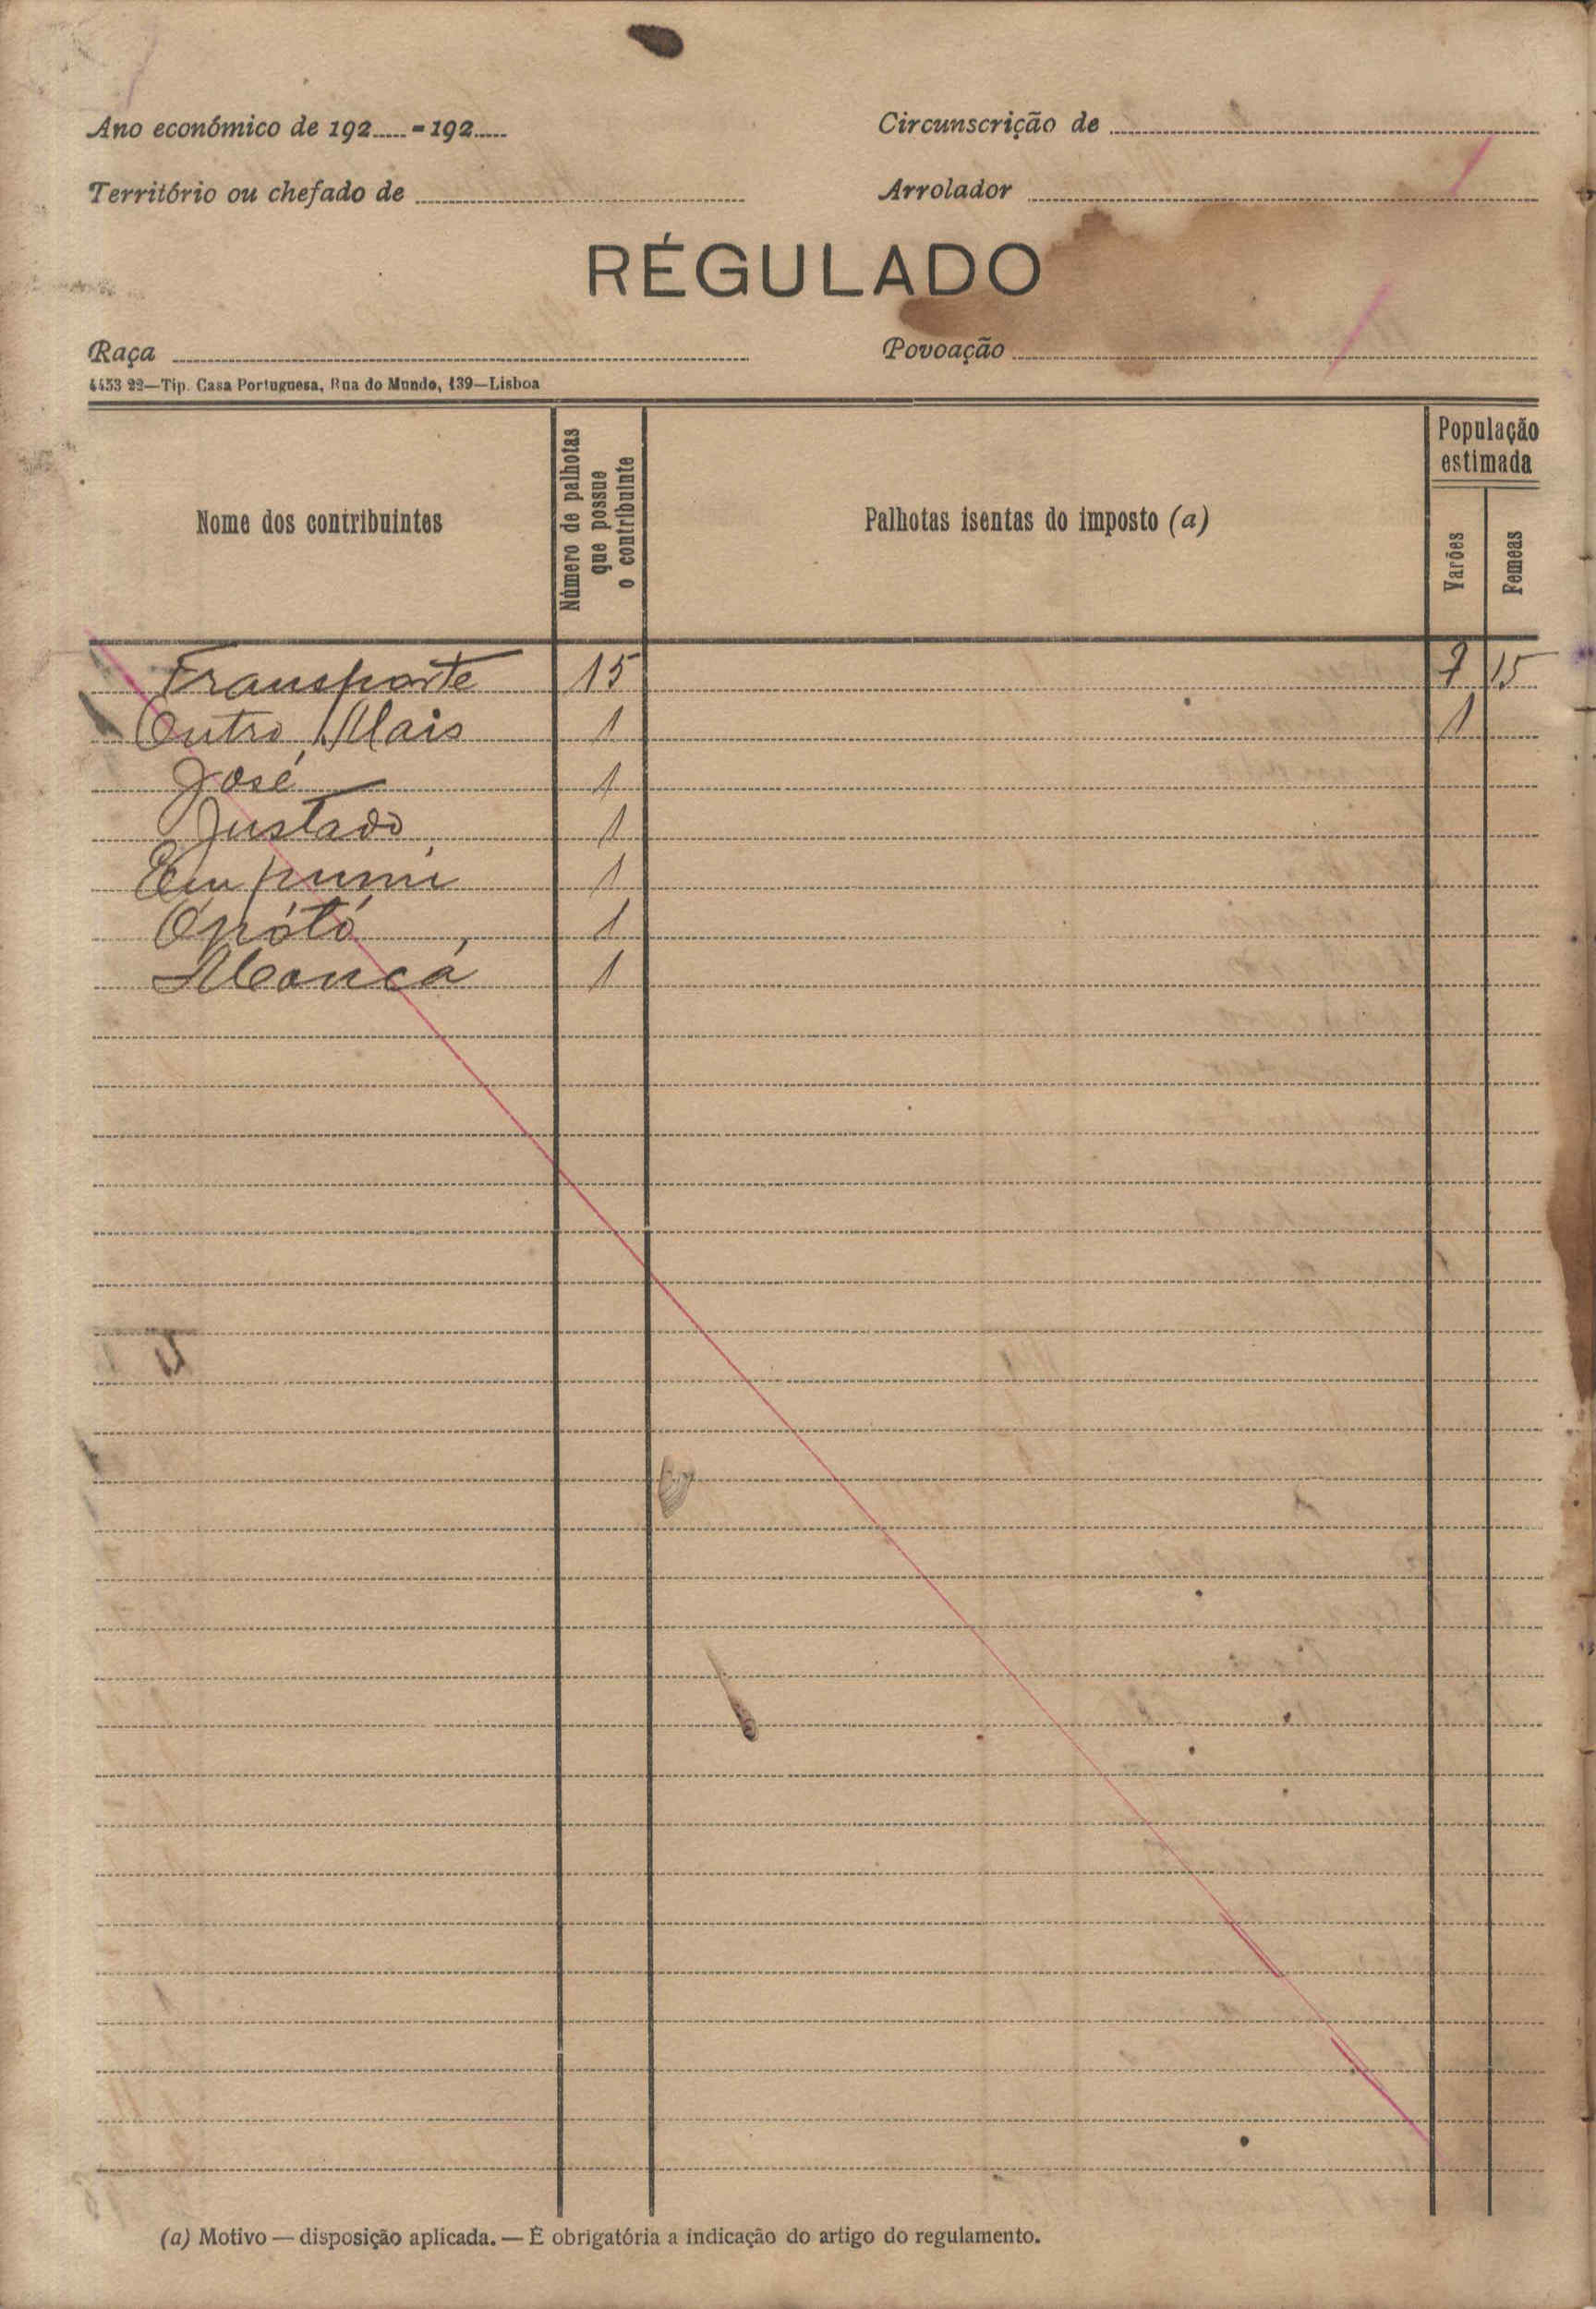 Ano económico de 192.....-192.....
Circunscrição de
Território ou chefado de
Arrolador
RÉGULADO
Raça
Povoação
4453 22—Tip. Casa Portuguesa, Rua do Mundo, 139—Lisboa
Nome dos contribuintes
Número de palhotas que possue o contribuinte
Palhotas isentas do imposto (a)
População estimada
Varões
Femeas
Transporte 15 7 15
Outro Mais 1 1
José 1
Justado 1
Empumi 1
Opótó 1
Mancá 1
(a) Motivo — disposição aplicada. — É obrigatória a indicação do artigo do regulamento.